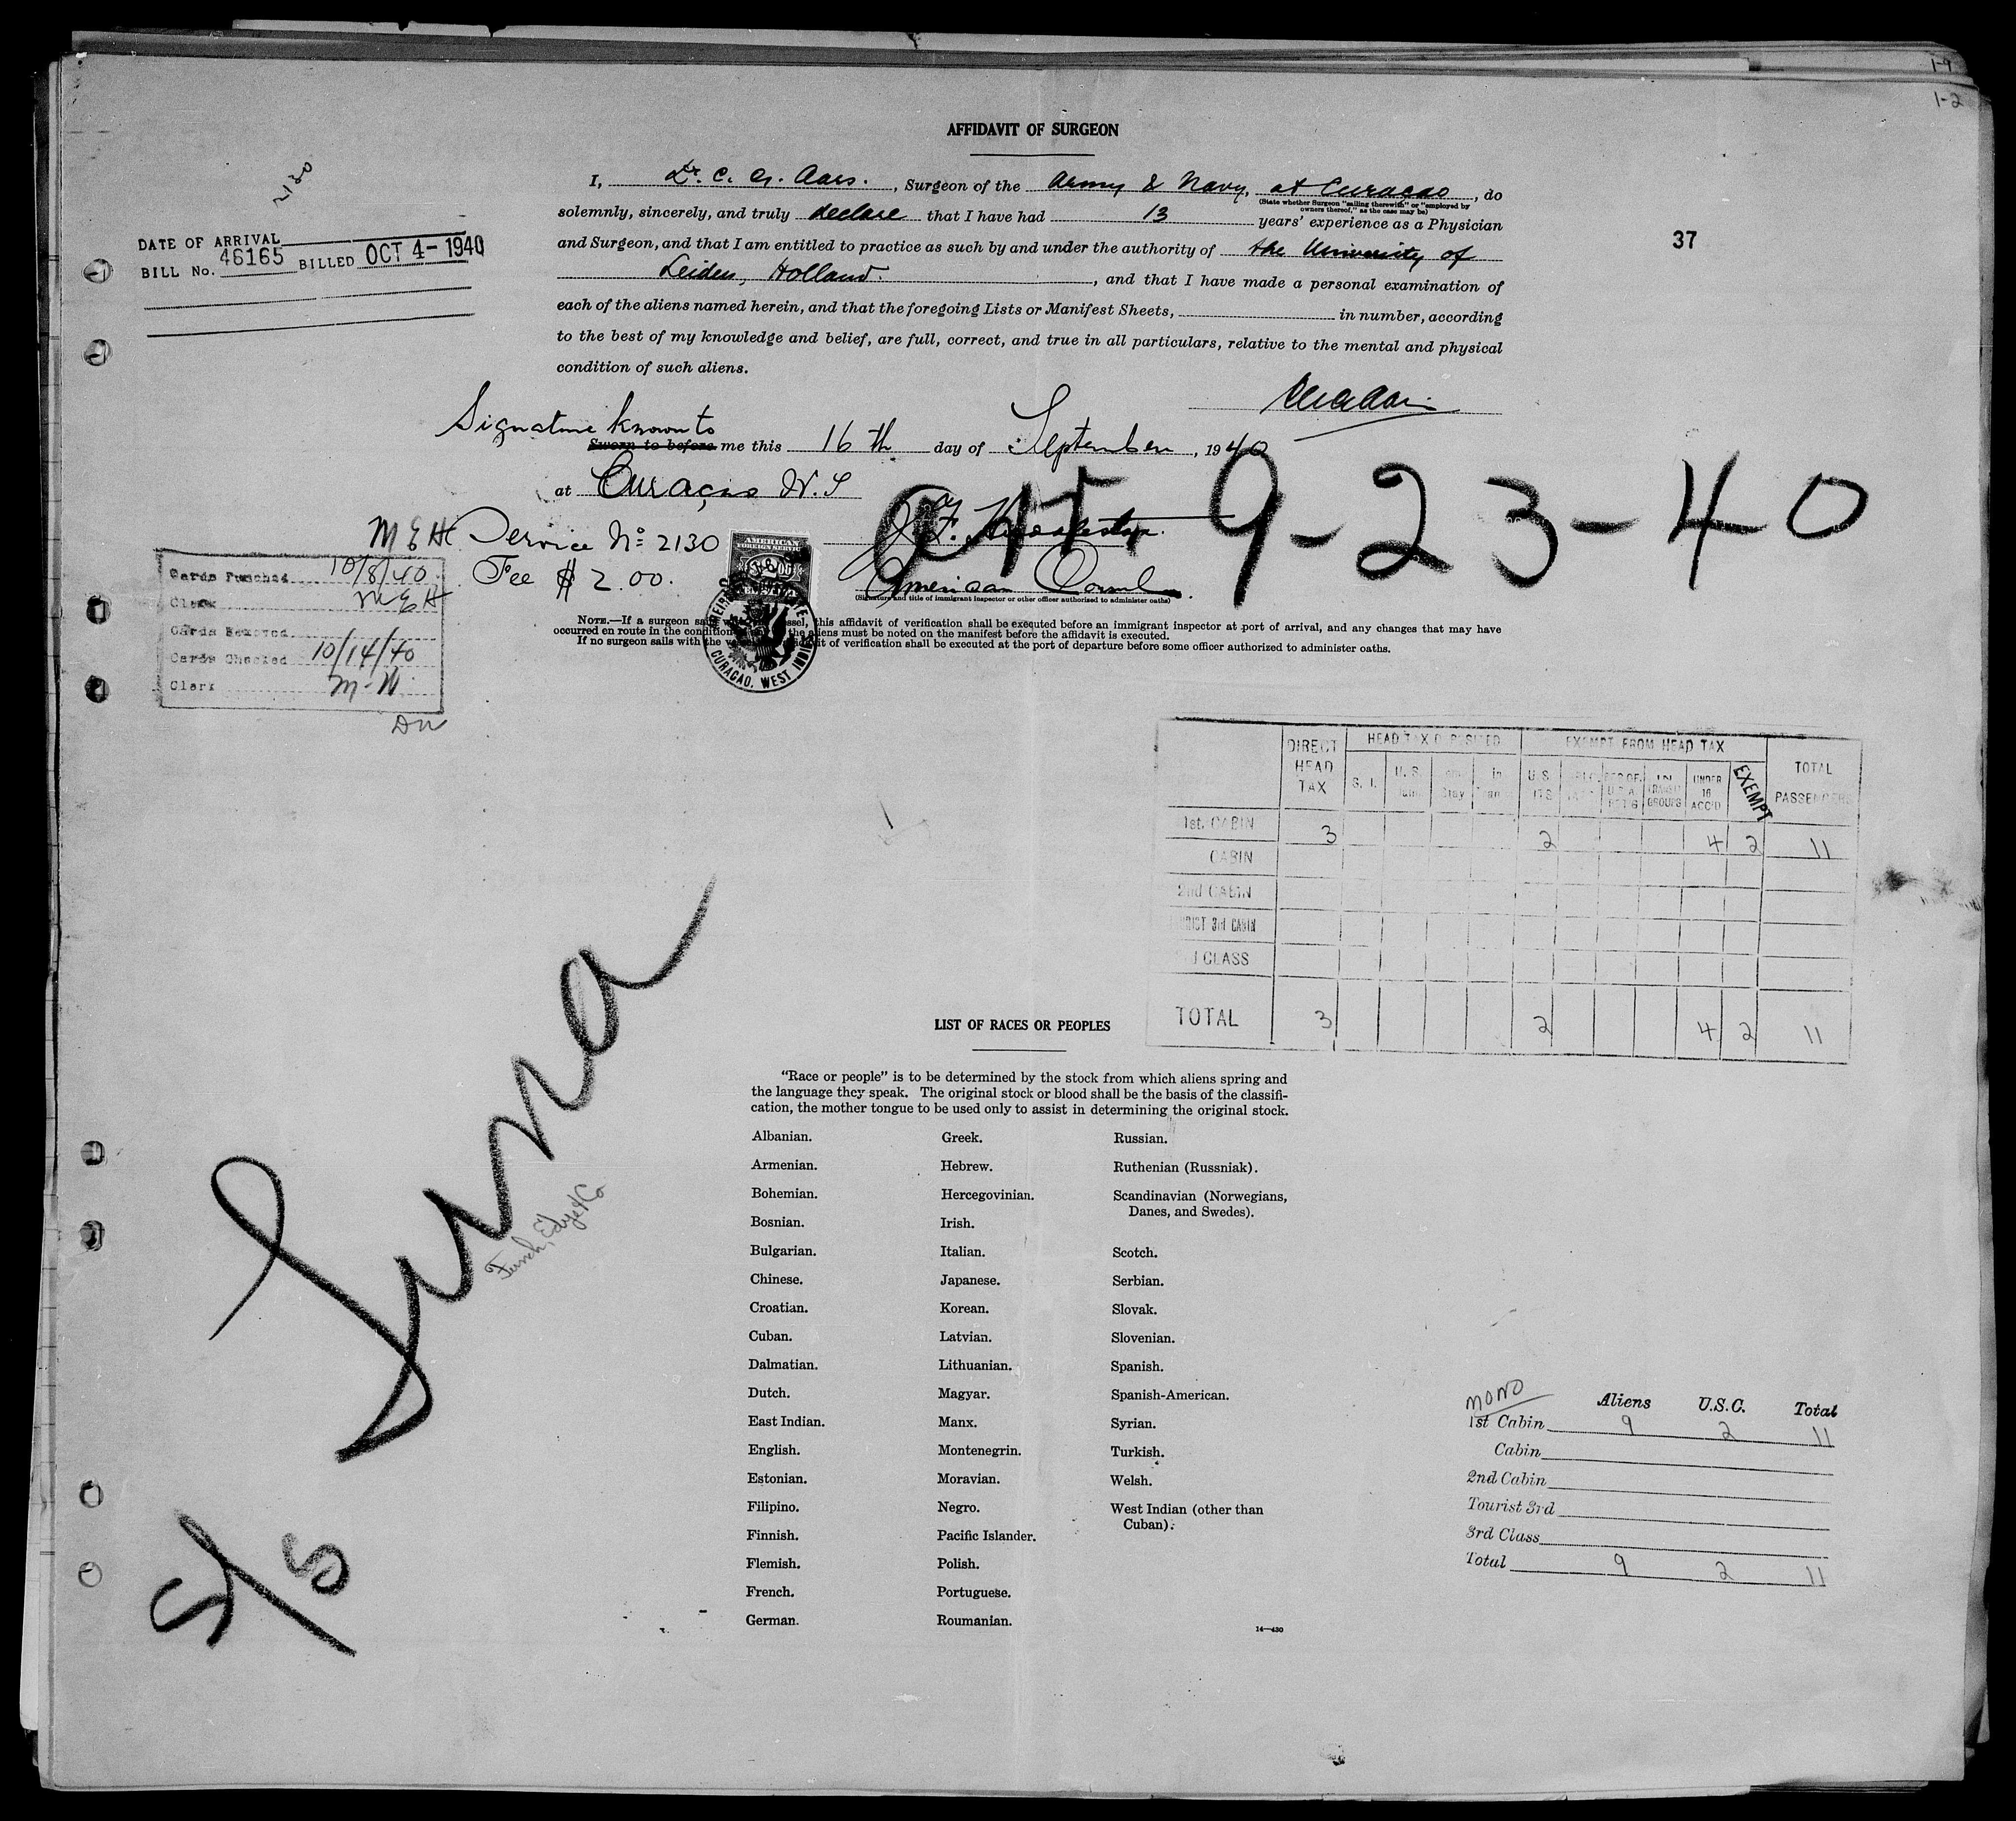 1-9
1-2
AFFIDAVIT OF SURGEON
2130
I, Dr. C. A. Aars. , Surgeon of the Army & Navy, at Curacao , do
(State whether Surgeon "sailing therewith" or "employed by
owners thereof," as the case may be)
solemnly, sincerely, and truly declare that I have had 13 years' experience as a Physician
and Surgeon, and that I am entitled to practice as such by and under the authority of the University of
Leiden, Holland. , and that I have made a personal examination of
each of the aliens named herein, and that the foregoing Lists or Manifest Sheets, in number, according
to the best of my knowledge and belief, are full, correct, and true in all particulars, relative to the mental and physical
condition of such aliens.
DATE OF ARRIVAL
BILL No. 46165 BILLED OCT 4-1940
37
Signature known to
Sworn to before me this 16th day of September , 1940
at Curaçao W. I
arr 9-23-40
MEH Service No: 2130
Fee $ 2.00.
American Consul.
(Signature and title of immigrant inspector or other officer authorized to administer oaths)
AMERICAN
FOREIGN SERVICE
CURACAO, WEST INDIES
Cards Punched 10/8/40
Clerk MEH
Cards Removed
Cards Checked 10/14/40
Clerk M-N
DN
NOTE.—If a surgeon sails with the vessel, this affidavit of verification shall be executed before an immigrant inspector at port of arrival, and any changes that may have
occurred en route in the condition of the aliens must be noted on the manifest before the affidavit is executed.
If no surgeon sails with the vessel affidavit of verification shall be executed at the port of departure before some officer authorized to administer oaths.
DIRECT HEAD TAX HEAD TAX DEPOSITED EXEMPT FROM HEAD TAX TOTAL PASSENGERS
S. I. U.S. in U.S. IN TRANSIT GROUPS UNDER 16 ACC'D EXEMPT
1st. CABIN 3 2 4 2 11
CABIN
2nd CABIN
TOURIST 3rd CABIN
3rd CLASS
TOTAL 3 2 4 2 11
S/S Luna
Funch, Edye & Co
LIST OF RACES OR PEOPLES
"Race or people" is to be determined by the stock from which aliens spring and
the language they speak. The original stock or blood shall be the basis of the classifi-
cation, the mother tongue to be used only to assist in determining the original stock.
Albanian. Greek. Russian.
Armenian. Hebrew. Ruthenian (Russniak).
Bohemian. Hercegovinian. Scandinavian (Norwegians,
Danes, and Swedes).
Bosnian. Irish.
Bulgarian. Italian. Scotch.
Chinese. Japanese. Serbian.
Croatian. Korean. Slovak.
Cuban. Latvian. Slovenian.
Dalmatian. Lithuanian. Spanish.
Dutch. Magyar. Spanish-American.
East Indian. Manx. Syrian.
English. Montenegrin. Turkish.
Estonian. Moravian. Welsh.
Filipino. Negro. West Indian (other than
Cuban).
Finnish. Pacific Islander.
Flemish. Polish.
French. Portuguese.
German. Roumanian.
14—430
MONO
Aliens U.S.C. Total
1st Cabin 9 2 11
Cabin
2nd Cabin
Tourist 3rd
3rd Class
Total 9 2 11